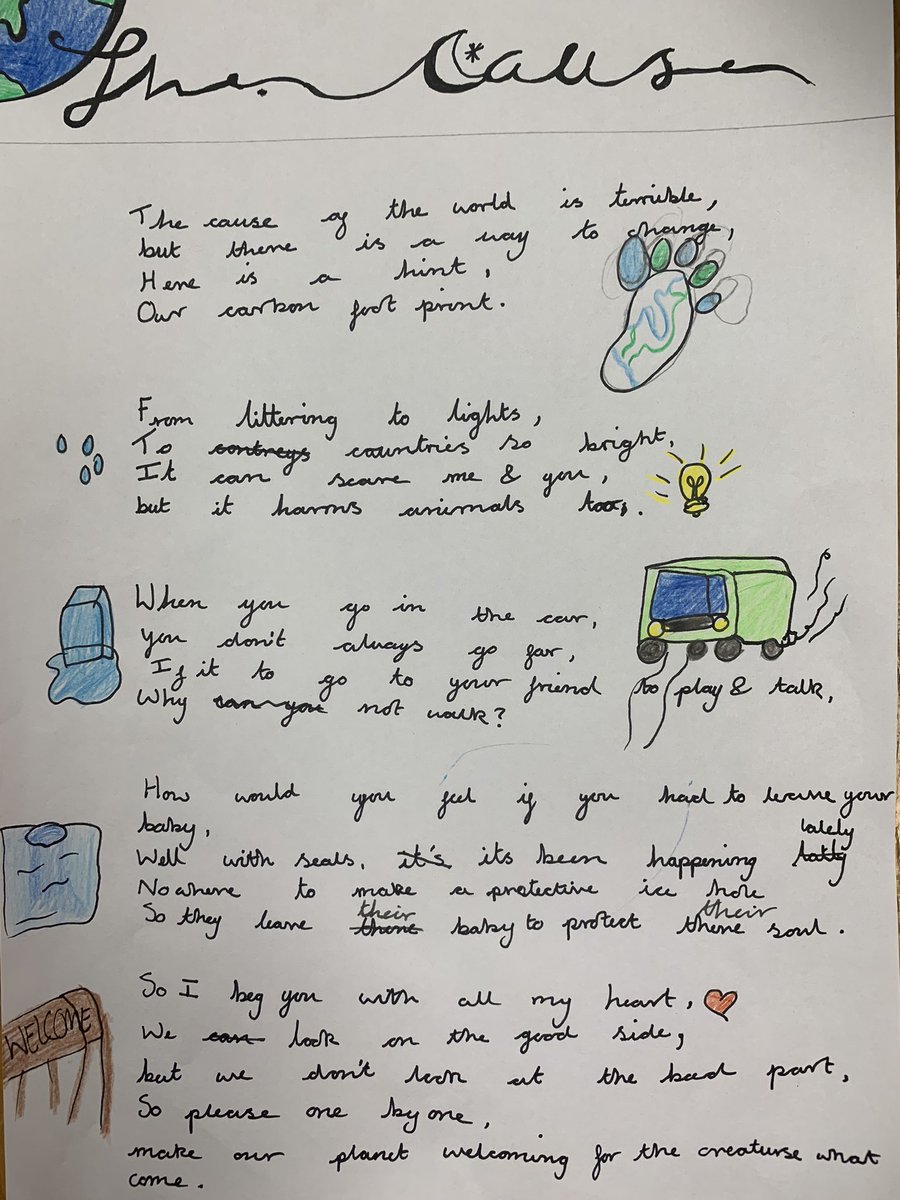 The Cause
The cause of the world is terrible,
but there is a way to change,
Here is a hint,
Our carbon foot print.
From littering to lights,
To contreys countries so bright,
It can scare me & you,
but it harms animals too,.
When you go in the car,
you don't always go far,
If it to go to your friend to play & talk,
Why can you not walk?
How would you feel if you had to leave your
baby,
lately
Well with seals, it's its been happening
Nowhere to make a protective ice hole
their their
So they leave there baby to protect there soul.
So I beg you with all my heart,
We can look on the good side,
but we don't look at the bad part,
So please one by one,
WELCOME
make our planet welcoming for the creaturse what
come.